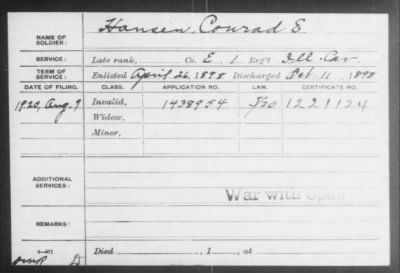 NAME OF SOLDIER: Hansen, Conrad E.
SERVICE: Late rank, Co. E, 1 Reg't Ill. Cav.
TERM OF SERVICE: Enlisted April 26, 1898 Discharged Oct 11, 1898
DATE OF FILING. CLASS. APPLICATION NO. LAW. CERTIFICATE NO.
1920, Aug. 9 Invalid, 1438954 1221124
Widow,
Minor,
ADDITIONAL SERVICES:
War with Spain
REMARKS:
Died , 1 , at